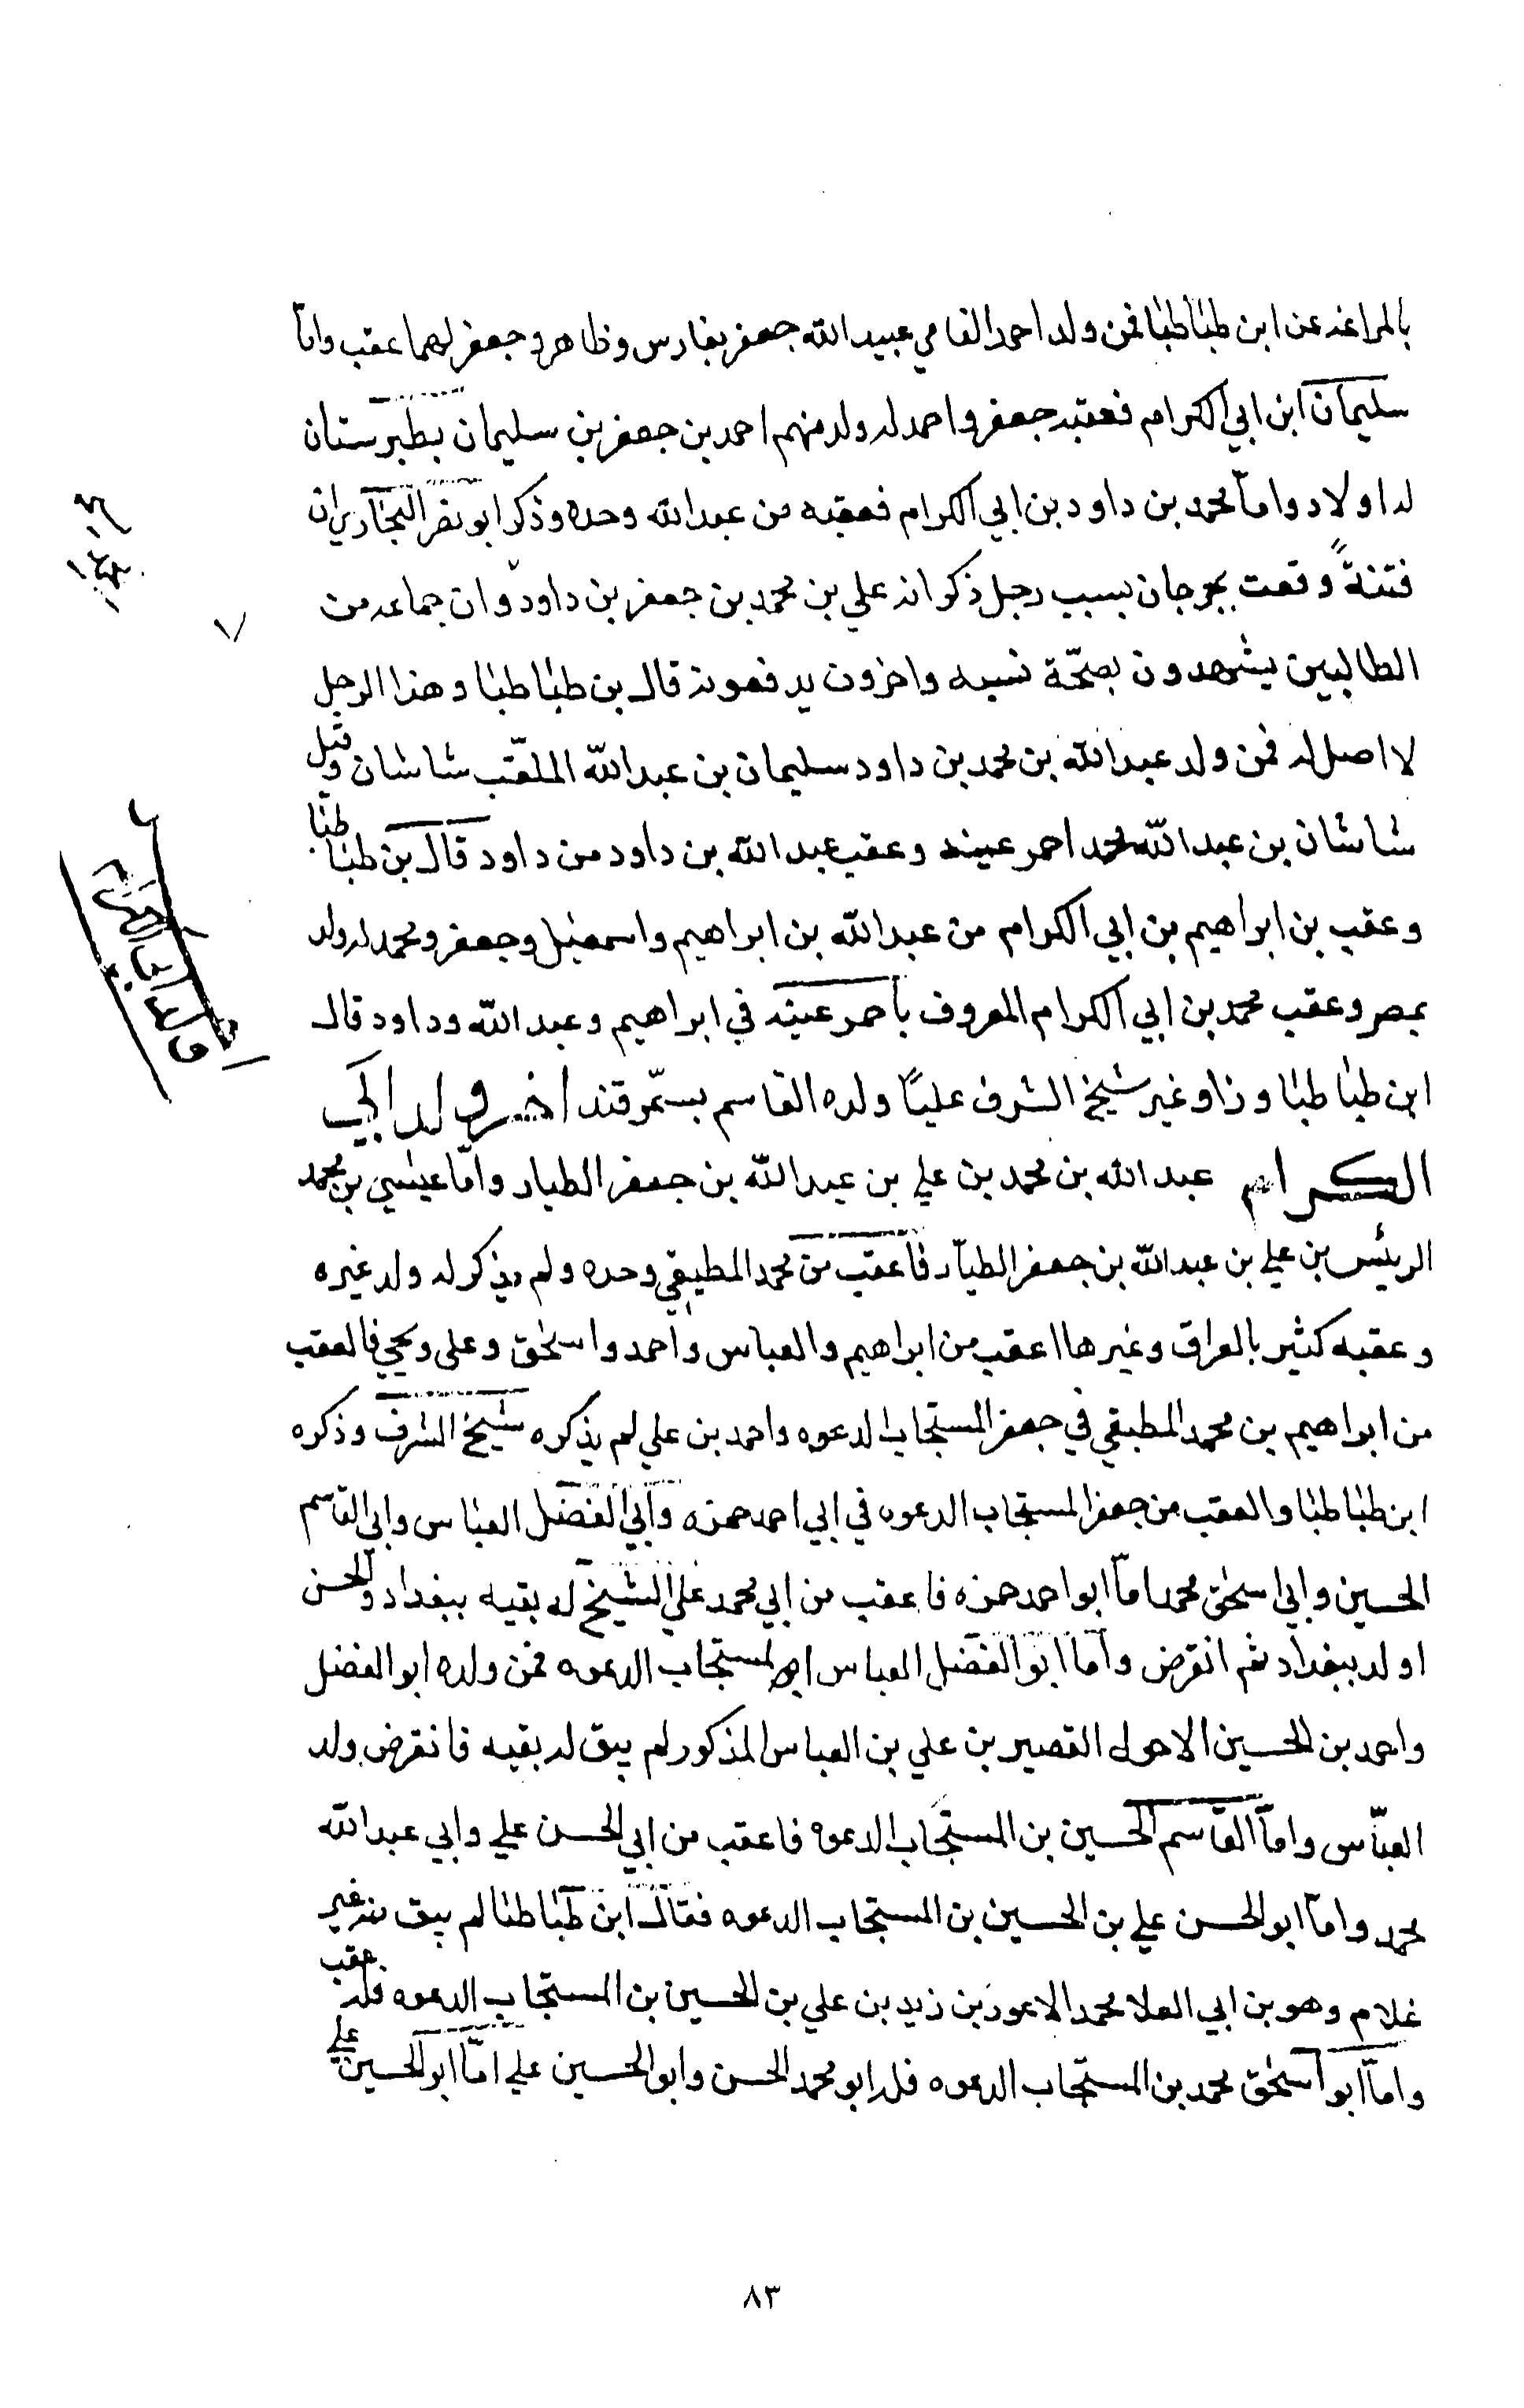 بالمراغه عن ابن طباطبا فمن ولد احمد القامي عبيدالله جعفر بفارس وظاهر و جعفر لهما عقب واما
سليمان ابن ابي الكرام فعقبه جعفر واحمد له ولد منهم احمد بن جعفر بن سليمان بطبرستان
له اولاد واما محمد بن داود بن ابي الكرام فعقبه من عبدالله وحده وذكر ابو نصر البخاري ان
فتنةً وقعت بجرجان بسبب رجل ذكر انه علي بن محمد بن جعفر بن داود وان جماعه من
الطالبيين يشهدون بصحّة نسبه واخرون يدفعونه قال بن طباطبا وهذا الرجل
لا اصل له فمن ولد عبدالله بن محمد بن داود سليمان بن عبدالله الملقّب شاشان وقيل
شاشان بن عبدالله محمد احمر عينه وعقب عبدالله بن داود من داود قال بن طباطبا
وعقب بن ابراهيم بن ابي الكرام من عبدالله بن ابراهيم واسمعيل وجعفر ومحمد له ولد
بمصر وعقب محمد بن ابي الكرام المعروف بأحمر عينه في ابراهيم وعبدالله وداود قال
ابن طباطبا وزاد غير شيخ الشرف عليًا ولده القاسم بسمّرقند اخر ولد ابي
الكرام عبدالله بن محمد بن علي بن عبدالله بن جعفر الطيار وامّا عيسي بن محمد
الرئيس بن علي بن عبدالله بن جعفر الطيّار فاعقب من محمد المطبقي وحده ولم يذكر له ولد غيره
وعقبه كثير بالعراق وغيرها اعقب من ابراهيم والعباس واحمد واسحٰق وعلى ويحيي فالعقب
من ابراهيم بن محمد المطبقي في جعفر المستجاب الدعوه واحمد بن علي لم يذكره شيخ الشرف وذكره
ابن طباطبا والعقب من جعفر المستجاب الدعوه في ابي احمد حمزه وابي الفضل العباس وابي القاسم
الحسين وابي اسحٰق محمد امّا ابو احمد حمزه فاعقب من ابي محمد علي الشيخ له بقيه ببغداد والحسن
اولد ببغداد ثم انقرض واما ابو الفضل العباس ابن المستجاب الدعوه فمن ولده ابو الفضل
واحمد بن الحسين الاحول القصير بن علي بن العباس المذكور لم يبق له بقيه فانقرض ولد
العبّاس وامّا القاسم الحسين بن المستجاب الدعوه فاعقب من ابي الحسن علي وابي عبدالله
محمد وامّا ابو الحسن علي بن الحسين بن المستجاب الدعوه فقال ابن طباطبا لم يبق منه غير
غلام وهو بن ابي العلا محمد الاعور بن زيد بن علي بن الحسين بن المستجاب الدعوه فله عقب
وامّا ابو اسحٰق محمد بن المستجاب الدعوه فله ابو محمد الحسن وابو الحسين علي امّا ابو الحسين علي
٨٣